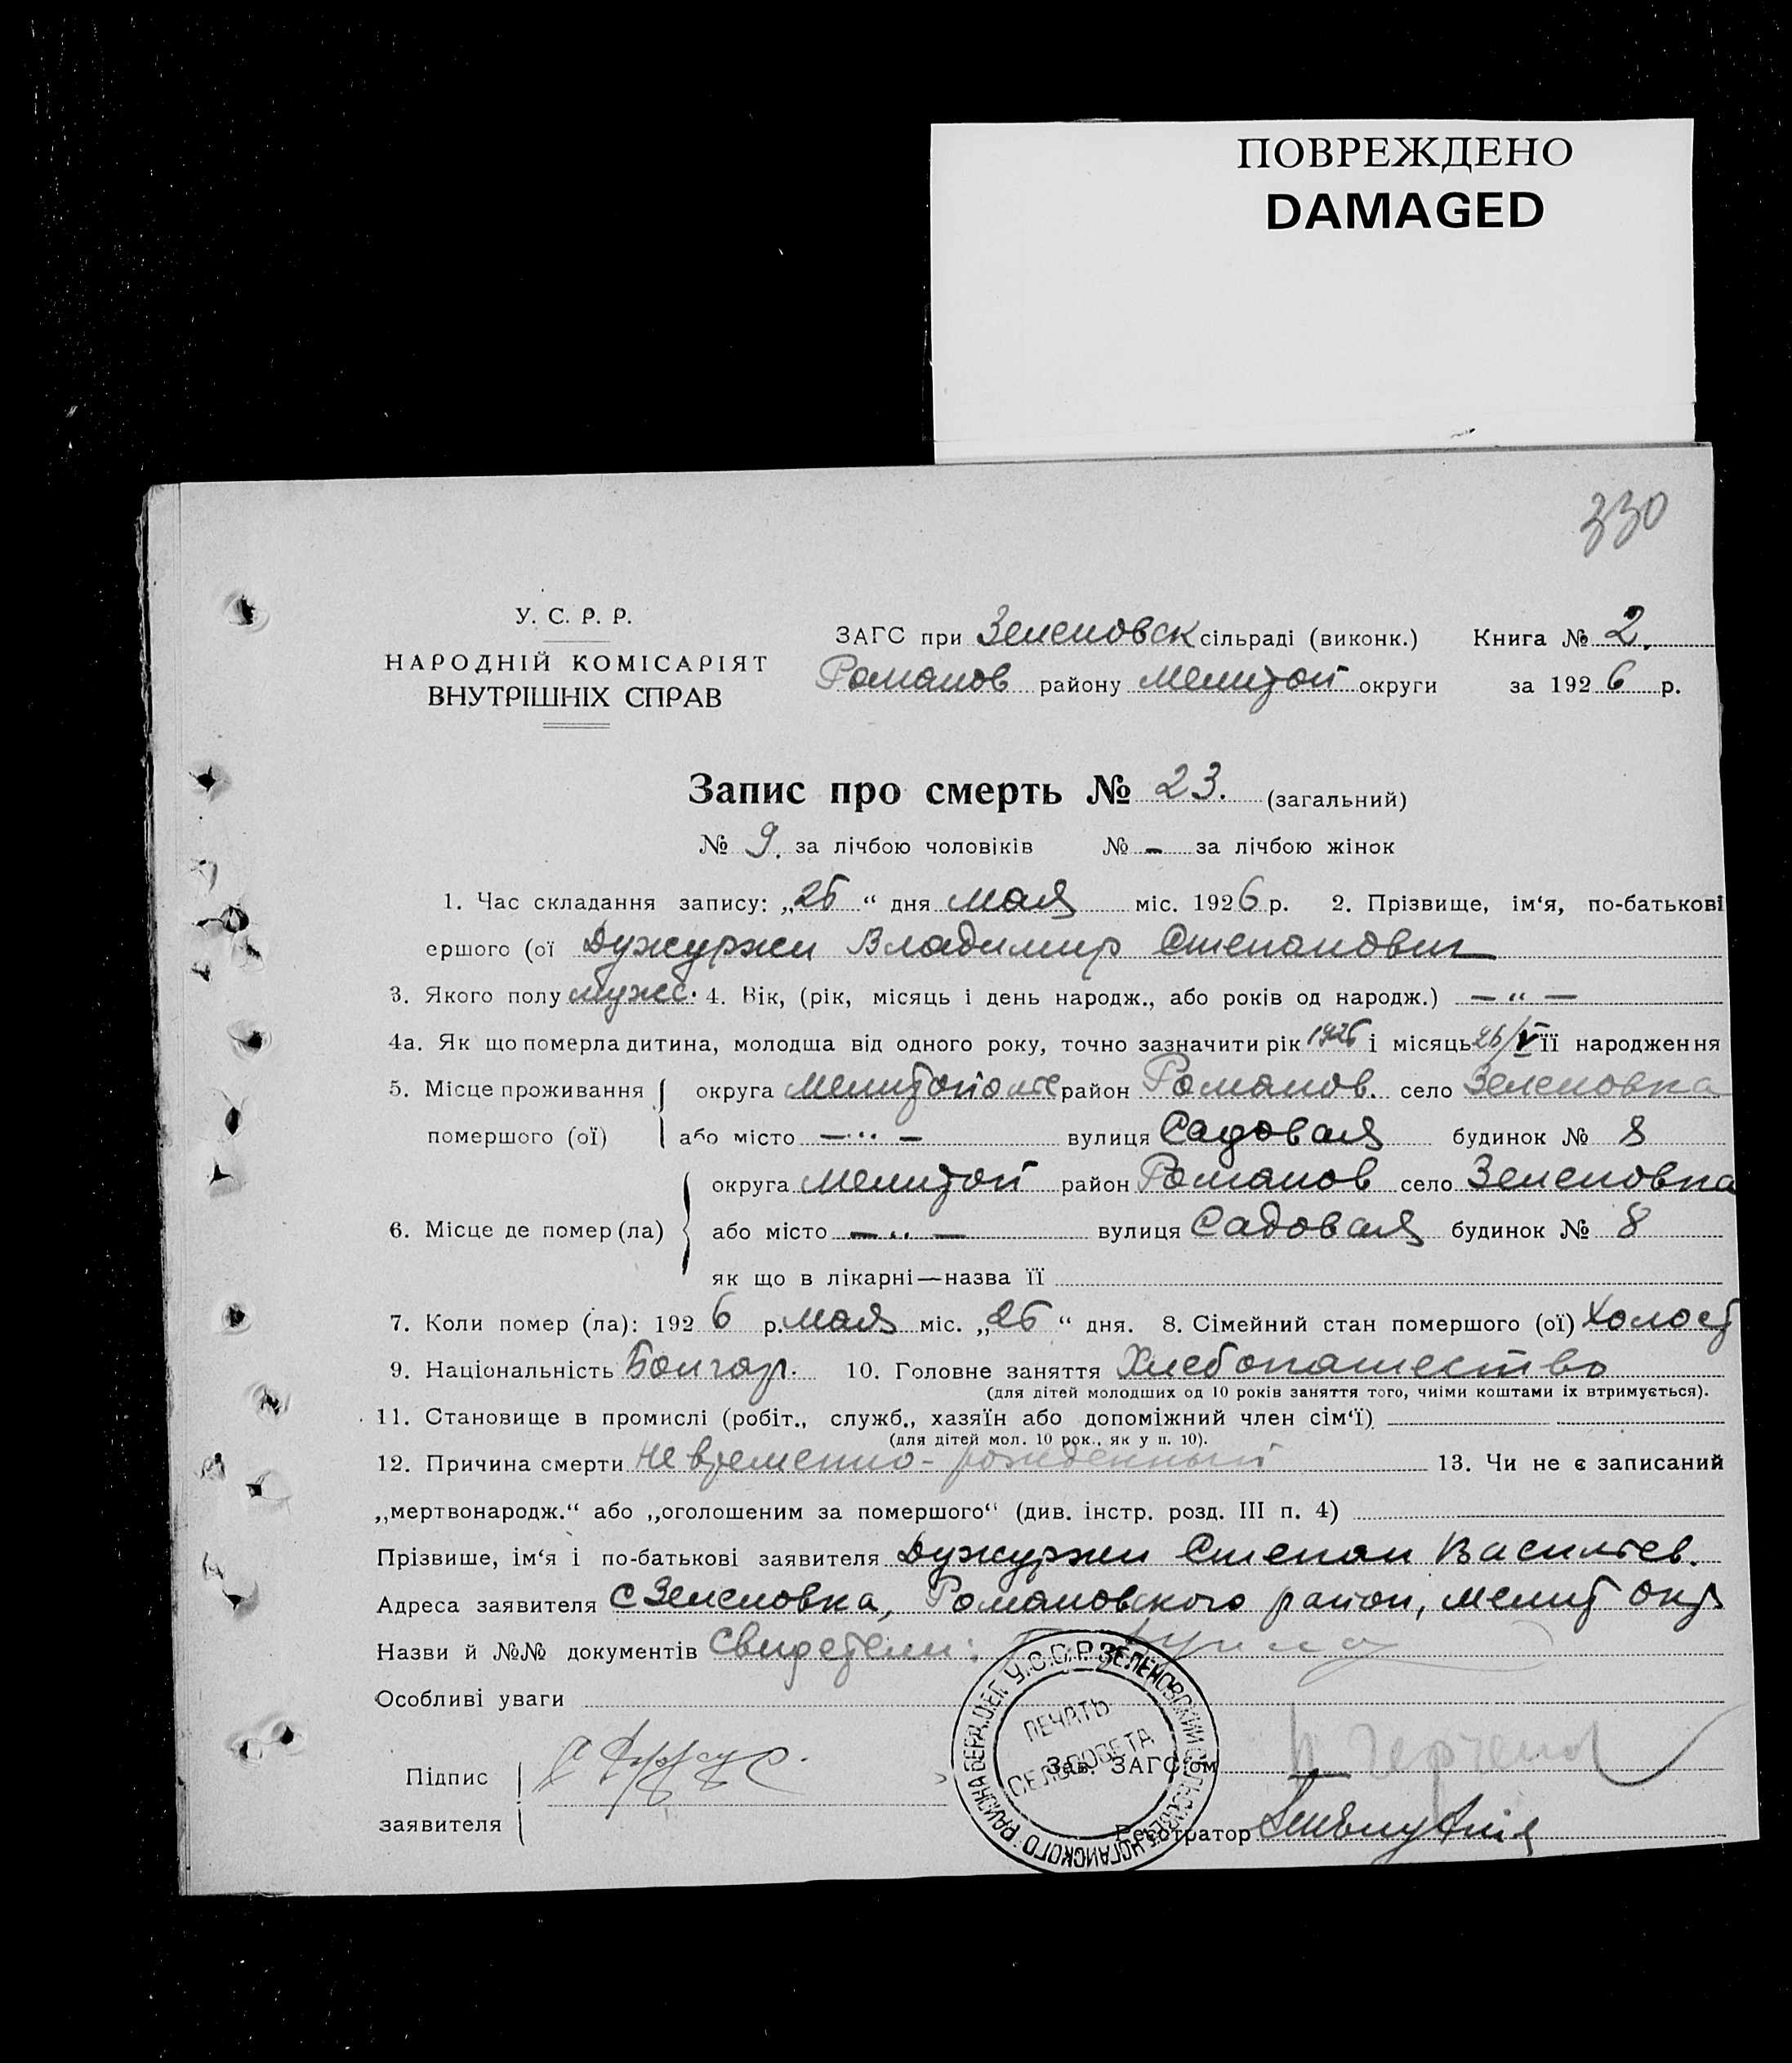 ПОВРЕЖДЕНО
DAMAGED
330
У. С. Р. Р.
НАРОДНІЙ КОМІСАРІЯТ
ВНУТРІШНІХ СПРАВ
ЗАГС при Зеленовск сільраді (виконк.) Книга № 2.
Романов району Мелитоп округи за 1926 р.
Запис про смерть № 23. (загальний)
№ 9. за лічбою чоловіків № - за лічбою жінок
1. Час складання запису: „26“ дня мая міс. 1926 р. 2. Прізвище, ім‘я, по-батькові
ершого (ої Дужуржи Владимир Степанович
3. Якого полу мужс. 4. Вік, (рік, місяць і день народж., або років од народж.) — “ —
4а. Як що померла дитина, молодша від одного року, точно зазначити рік 1926 і місяць 26/V її народження
5. Місце проживання округа Мелитопольс район Романов. село Зеленовка
помершого (ої) або місто — ·· — вулиця Садовая будинок № 8
округа Мелитоп район Романов село Зеленовка
6. Місце де помер (ла) або місто — ·· — вулиця Садовая будинок № 8
як що в лікарні—назва її
7. Коли помер (ла): 1926 р. мая міс. „26“ дня. 8. Сімейний стан помершого (ої) холост
9. Національність Болгар. 10. Головне заняття Хлебопашество
(для дітей молодших од 10 років заняття того, чиїми коштами їх втримується).
11. Становище в промислі (робіт., служб., хазяїн або допоміжний член сім‘ї)
(для дітей мол. 10 рок., як у п. 10).
12. Причина смерти Не временно-рожденный 13. Чи не є записаний
„мертвонародж.“ або „оголошеним за помершого“ (див. інстр. розд. III п. 4)
Прізвише, ім‘я і по-батькові заявителя Дужуржи Степан Васильев.
Адреса заявителя с Зеленовка, Романовского район, Мелит окр
Назви й №№ документів свидетели:
Особливі уваги
Підпис
заявителя
Зав. ЗАГС‘ом
Реєстратор
У.С.С.Р. ЗЕЛЕНОВСКИЙ СЕЛЬСОВЕТ НОГАЙСКОГО РАЙОНА БЕРД. ОКГ.
ПЕЧАТЬ
СЕЛЬСОВЕТА